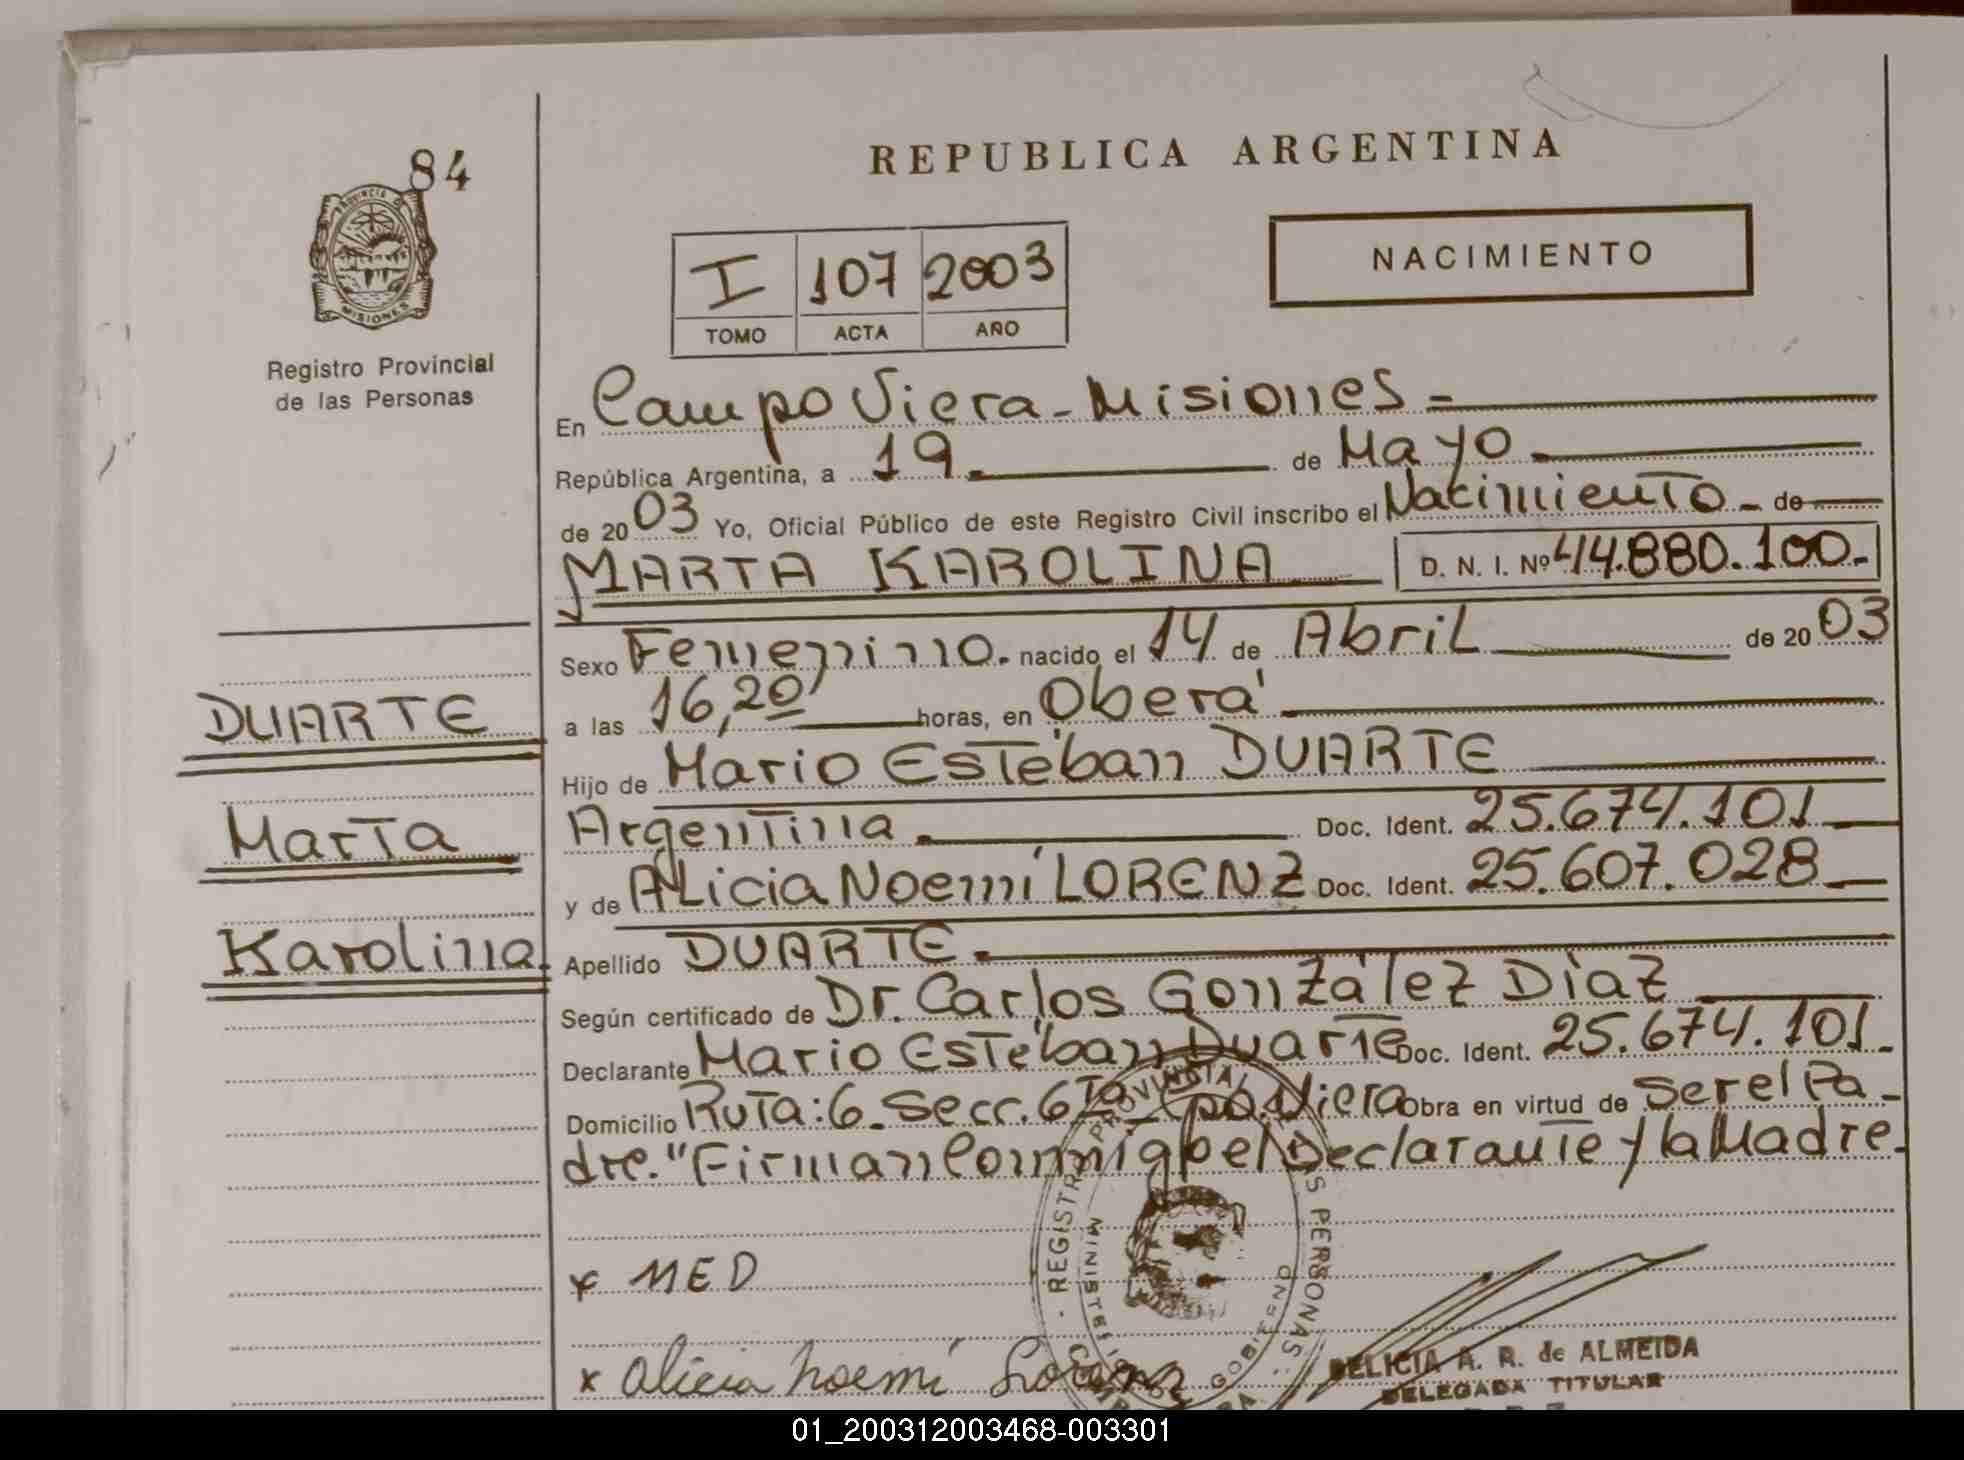 84
REPUBLICA ARGENTINA
PROVINCIA DE
MISIONES
Registro Provincial
de las Personas
I 107 2003
TOMO ACTA AÑO
NACIMIENTO
En Campo Viera - Misiones -
República Argentina, a 19 de Mayo
de 2003 Yo, Oficial Público de este Registro Civil inscribo el Nacimiento - de
MARTA KAROLINA D. N. I. Nº 44.880.100.-
Sexo Femenino. nacido el 14 de Abril de 2003
a las 16,20 horas, en Oberá
DUARTE
Hijo de Mario Esteban DUARTE
Argentina. Doc. Ident. 25.674.101
Marta
y de Alicia Noemí LORENZ Doc. Ident. 25.607.028
Karolina
Apellido DUARTE.
Según certificado de Dr. Carlos González Díaz
Declarante Mario Esteban Duarte Doc. Ident. 25.674.101-
Domicilio Ruta: 6_ Secc. 6ta_ Cpo. Viera Obra en virtud de ser el Pa-
dre. "Firman Conmigo el Declarante y la Madre.
REGISTRO PROVINCIAL
S PERSONAS
x MED
x Alicia Noemí Lorenz
DELICIA A. R. de ALMEIDA
DELEGADA TITULAR
01_200312003468-003301